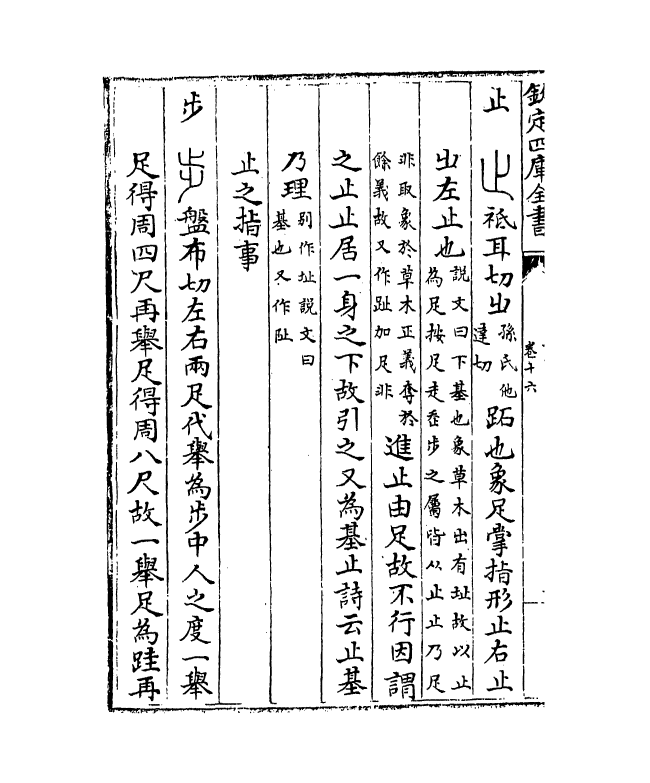 欽定四庫全書 卷十六
止 止 祗耳切㞢孫氏他達切跖也象足掌指形止右止
㞢左止也說文曰下基也象草木出有址故以止為足按足走步之屬皆从止止乃足
非取象於草木正義奪於餘義故又作趾加足非進止由足故不行因謂
之止止居一身之下故引之又為基止詩云止基
乃理别作址說文曰基也又作阯
止之指事
步 步 盤布切左右兩足代舉為步中人之度一舉
足得周四尺再舉足得周八尺故一舉足為跬再